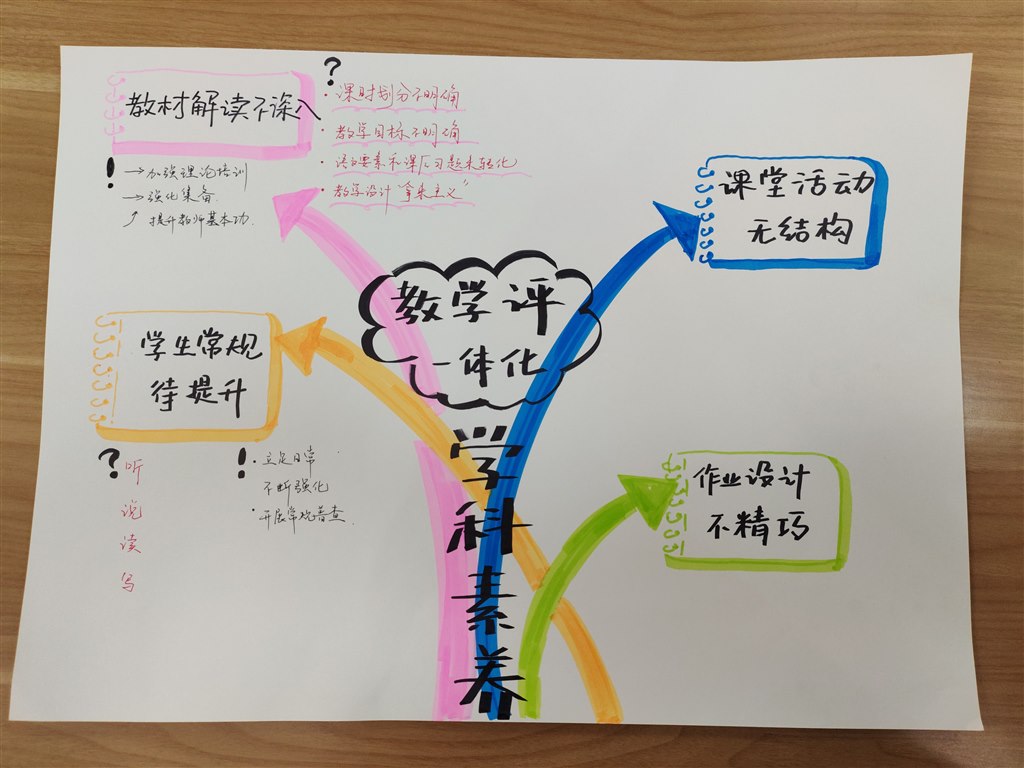 教材解读不深入
!
→加强理论培训
→强化集备
↗提升教师基本功.
?
·课时划分不明确
·教学目标不明确
·语文要素不课后习题未转化
·教学设计“拿来主义”
课堂活动
无结构
教学评
一体化
学生常规
待提升
?
听
说
读
写
!
·立足日常
不断强化
·开展常规普查.
作业设计
不精巧
学
科
素
养